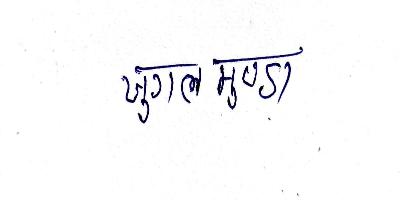 जुगल मुण्डा